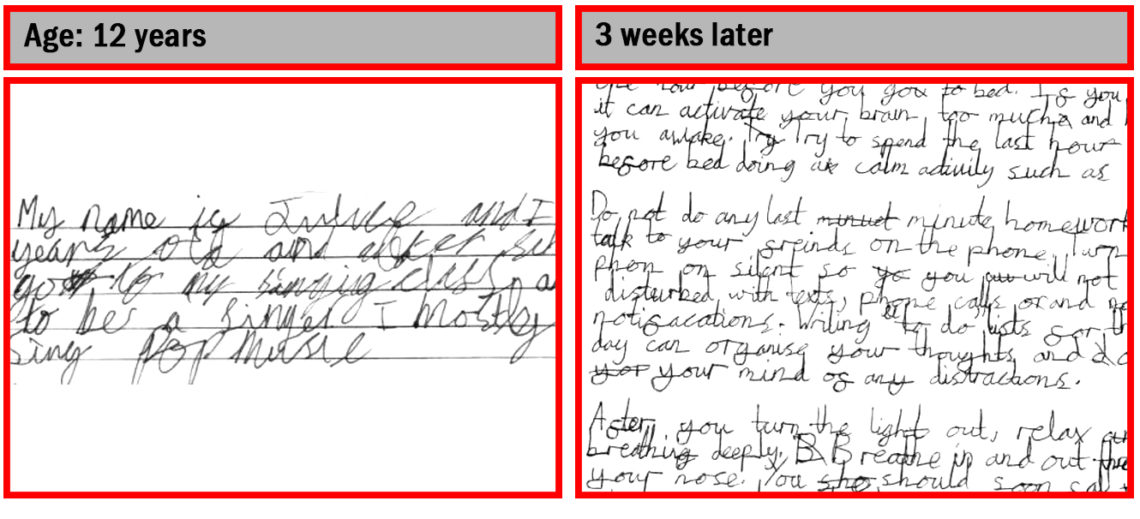 Age: 12 years
3 weeks later
My name is and I
years old and after
go to my singig class a
to be a singer I mostly
sing pop music
before you you to bed. If you
it can activate your brain too much and
you awake. Try Try to spend the last hour
before bed doing calm activity such as
Do not do any last minuet minute homework
talk to your freinds on the phone, turn
phon on silent so yo you will not
disturbed with texts, phone calls or and
notifacations. Writing to do lists for th
day can organise your thoughts and
your mind of any distractions.
After you turn the light out, relax
breathing deeply, B Breathe in and out
your nose. You sho should soon